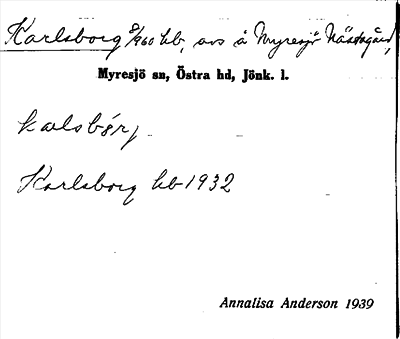 Karlsborg 8/960 hb, avs å Myresjö Näsbagård,
Myresjö sn, Östra hd, Jönk. l.
kalsbórj
Karlsborg hb 1932
Annalisa Anderson 1939